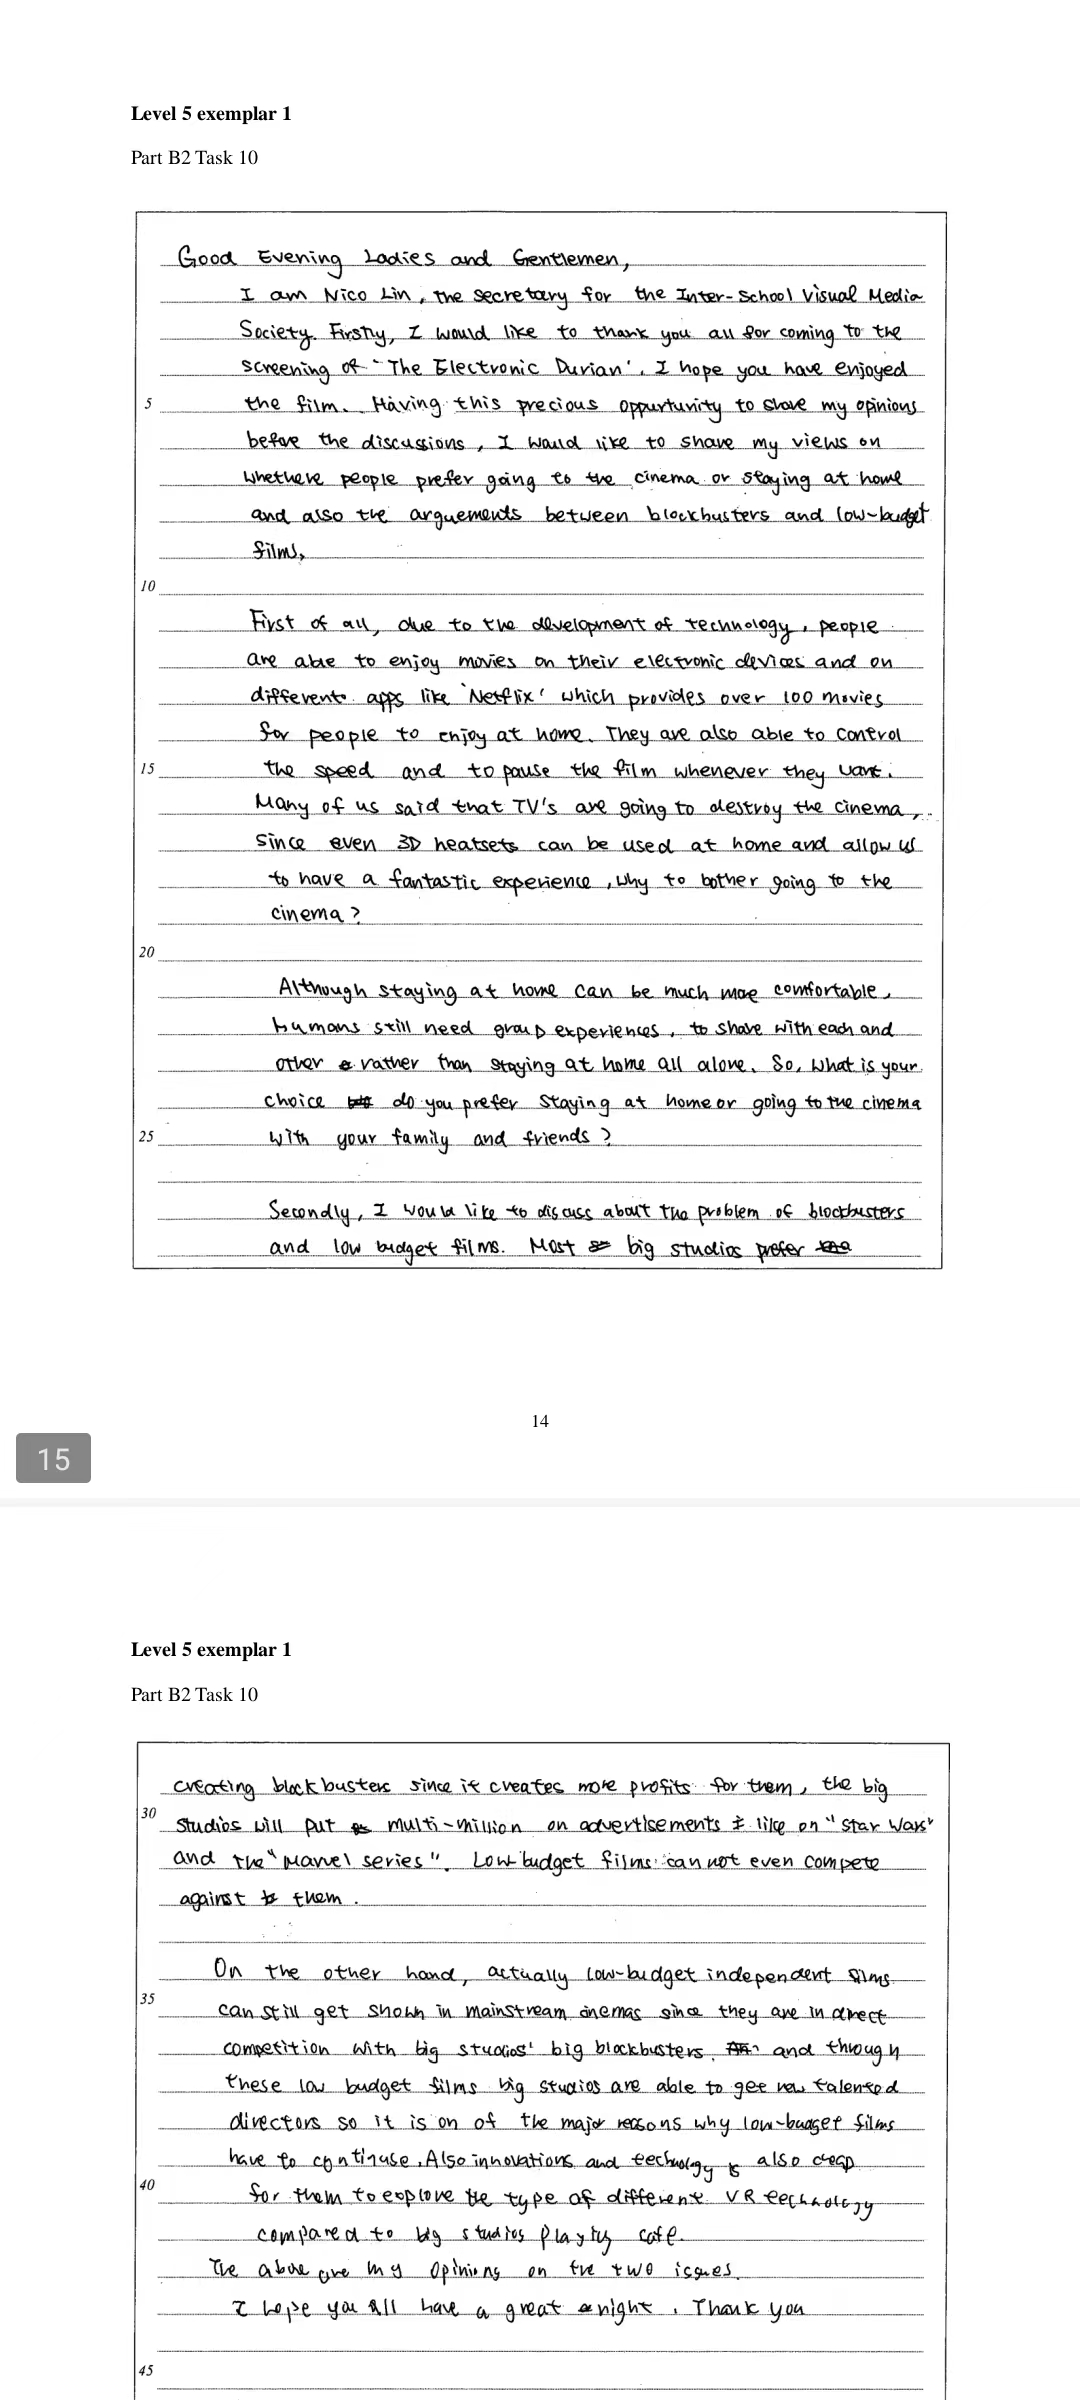 Level 5 exemplar 1
Part B2 Task 10
Good Evening Ladies and Gentlemen,
I am Nico Lin, the secretary for the Inter-School Visual Media
Society. Firstly, I would like to thank you all for coming to the
screening of 'The Electronic Durian'. I hope you have enjoyed
5 the film. Having this precious oppurtunity to share my opinions
before the discussions, I would like to share my views on
whethere people prefer going to the cinema or staying at home
and also the arguements between blockbusters and low-budget
films.
10
First of all, due to the development of technology, people
are able to enjoy movies on their electronic devices and on
different apps like 'Netflix' which provides over 100 movies
for people to enjoy at home. They are also able to control
15 the speed and to pause the film whenever they want.
Many of us said that TV's are going to destroy the cinema,
since even 3D heatsets can be used at home and allow us
to have a fantastic experience, why to bother going to the
cinema?
20
Although staying at home can be much more comfortable,
humans still need group experiences, to share with each and
other rather than staying at home all alone. So, what is your
choice do you prefer staying at home or going to the cinema
25 with your family and friends?
Secondly, I would like to discuss about the problem of blockbusters
and low budget films. Most big studios prefer
14
15
Level 5 exemplar 1
Part B2 Task 10
creating blockbusters since it creates more profits for them, the big
30 studios will put multi-million on advertisements like on "Star Wars"
and the "Marvel series". Low budget films can not even compete
against them.
On the other hand, actually low-budget independent films
35 can still get shown in mainstream cinemas since they are in direct
competition with big studios' big blockbusters. and through
these low budget films big studios are able to get new talented
directors so it is on of the major reasons why low-budget films
have to continuse. Also innovations and technology is also cheap
40 for them to explore the type of different VR technology
compared to big studios playing safe.
The above are my opinions on the two issues.
I hope you all have a great night. Thank you
45